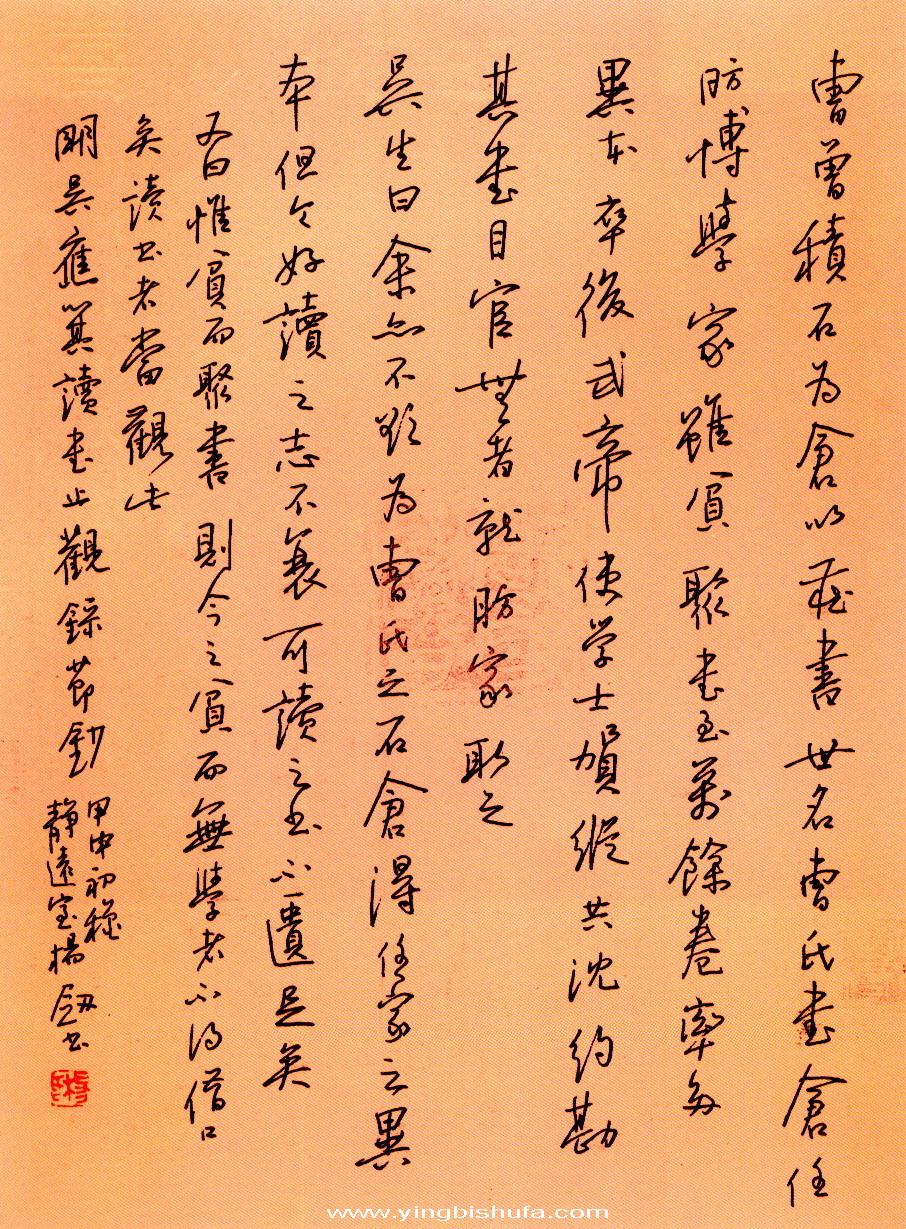 曹曾積石為倉以藏書世名曹氏書倉任
昉博學家雖貧聚書至萬餘卷率多
異本卒後武帝使学士賀縱共沈約勘
其書目官無者就昉家取之
吳生曰余亦不欲為曹氏之石倉得任家之異
本但令好讀之志不衰可讀之书不遺足矣
又曰惟貧而聚書則今之貧而無學者不得借口
矣讀书者當觀此
明吳應箕讀書止觀錄節鈔
甲申初秋
靜遠室楊劔书
www.yingbishufa.com